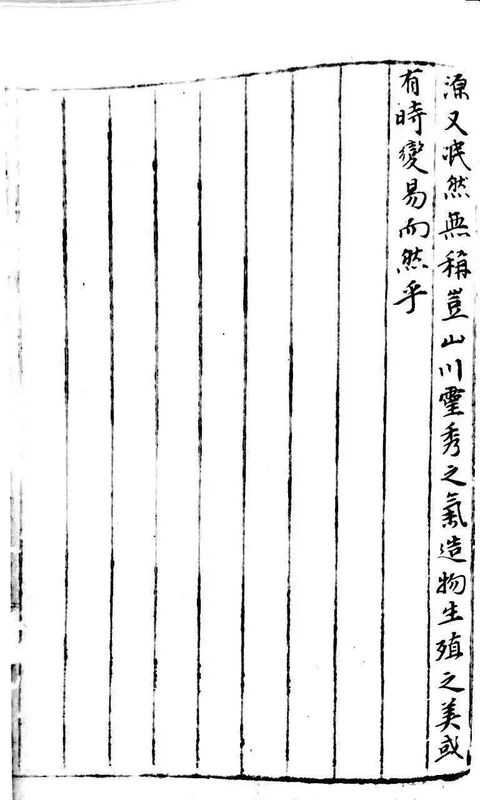 源又泯然無稱豈山川靈秀之氣造物生殖之美或
有時變易而然乎